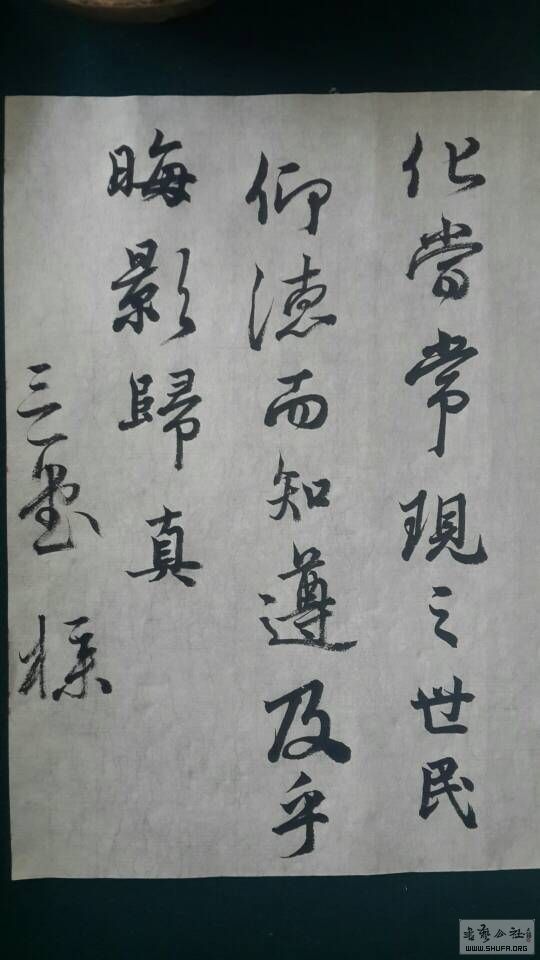 化当常現之世民
仰徳而知遵及乎
晦影歸真
三墨
WWW.SHUFA.ORG